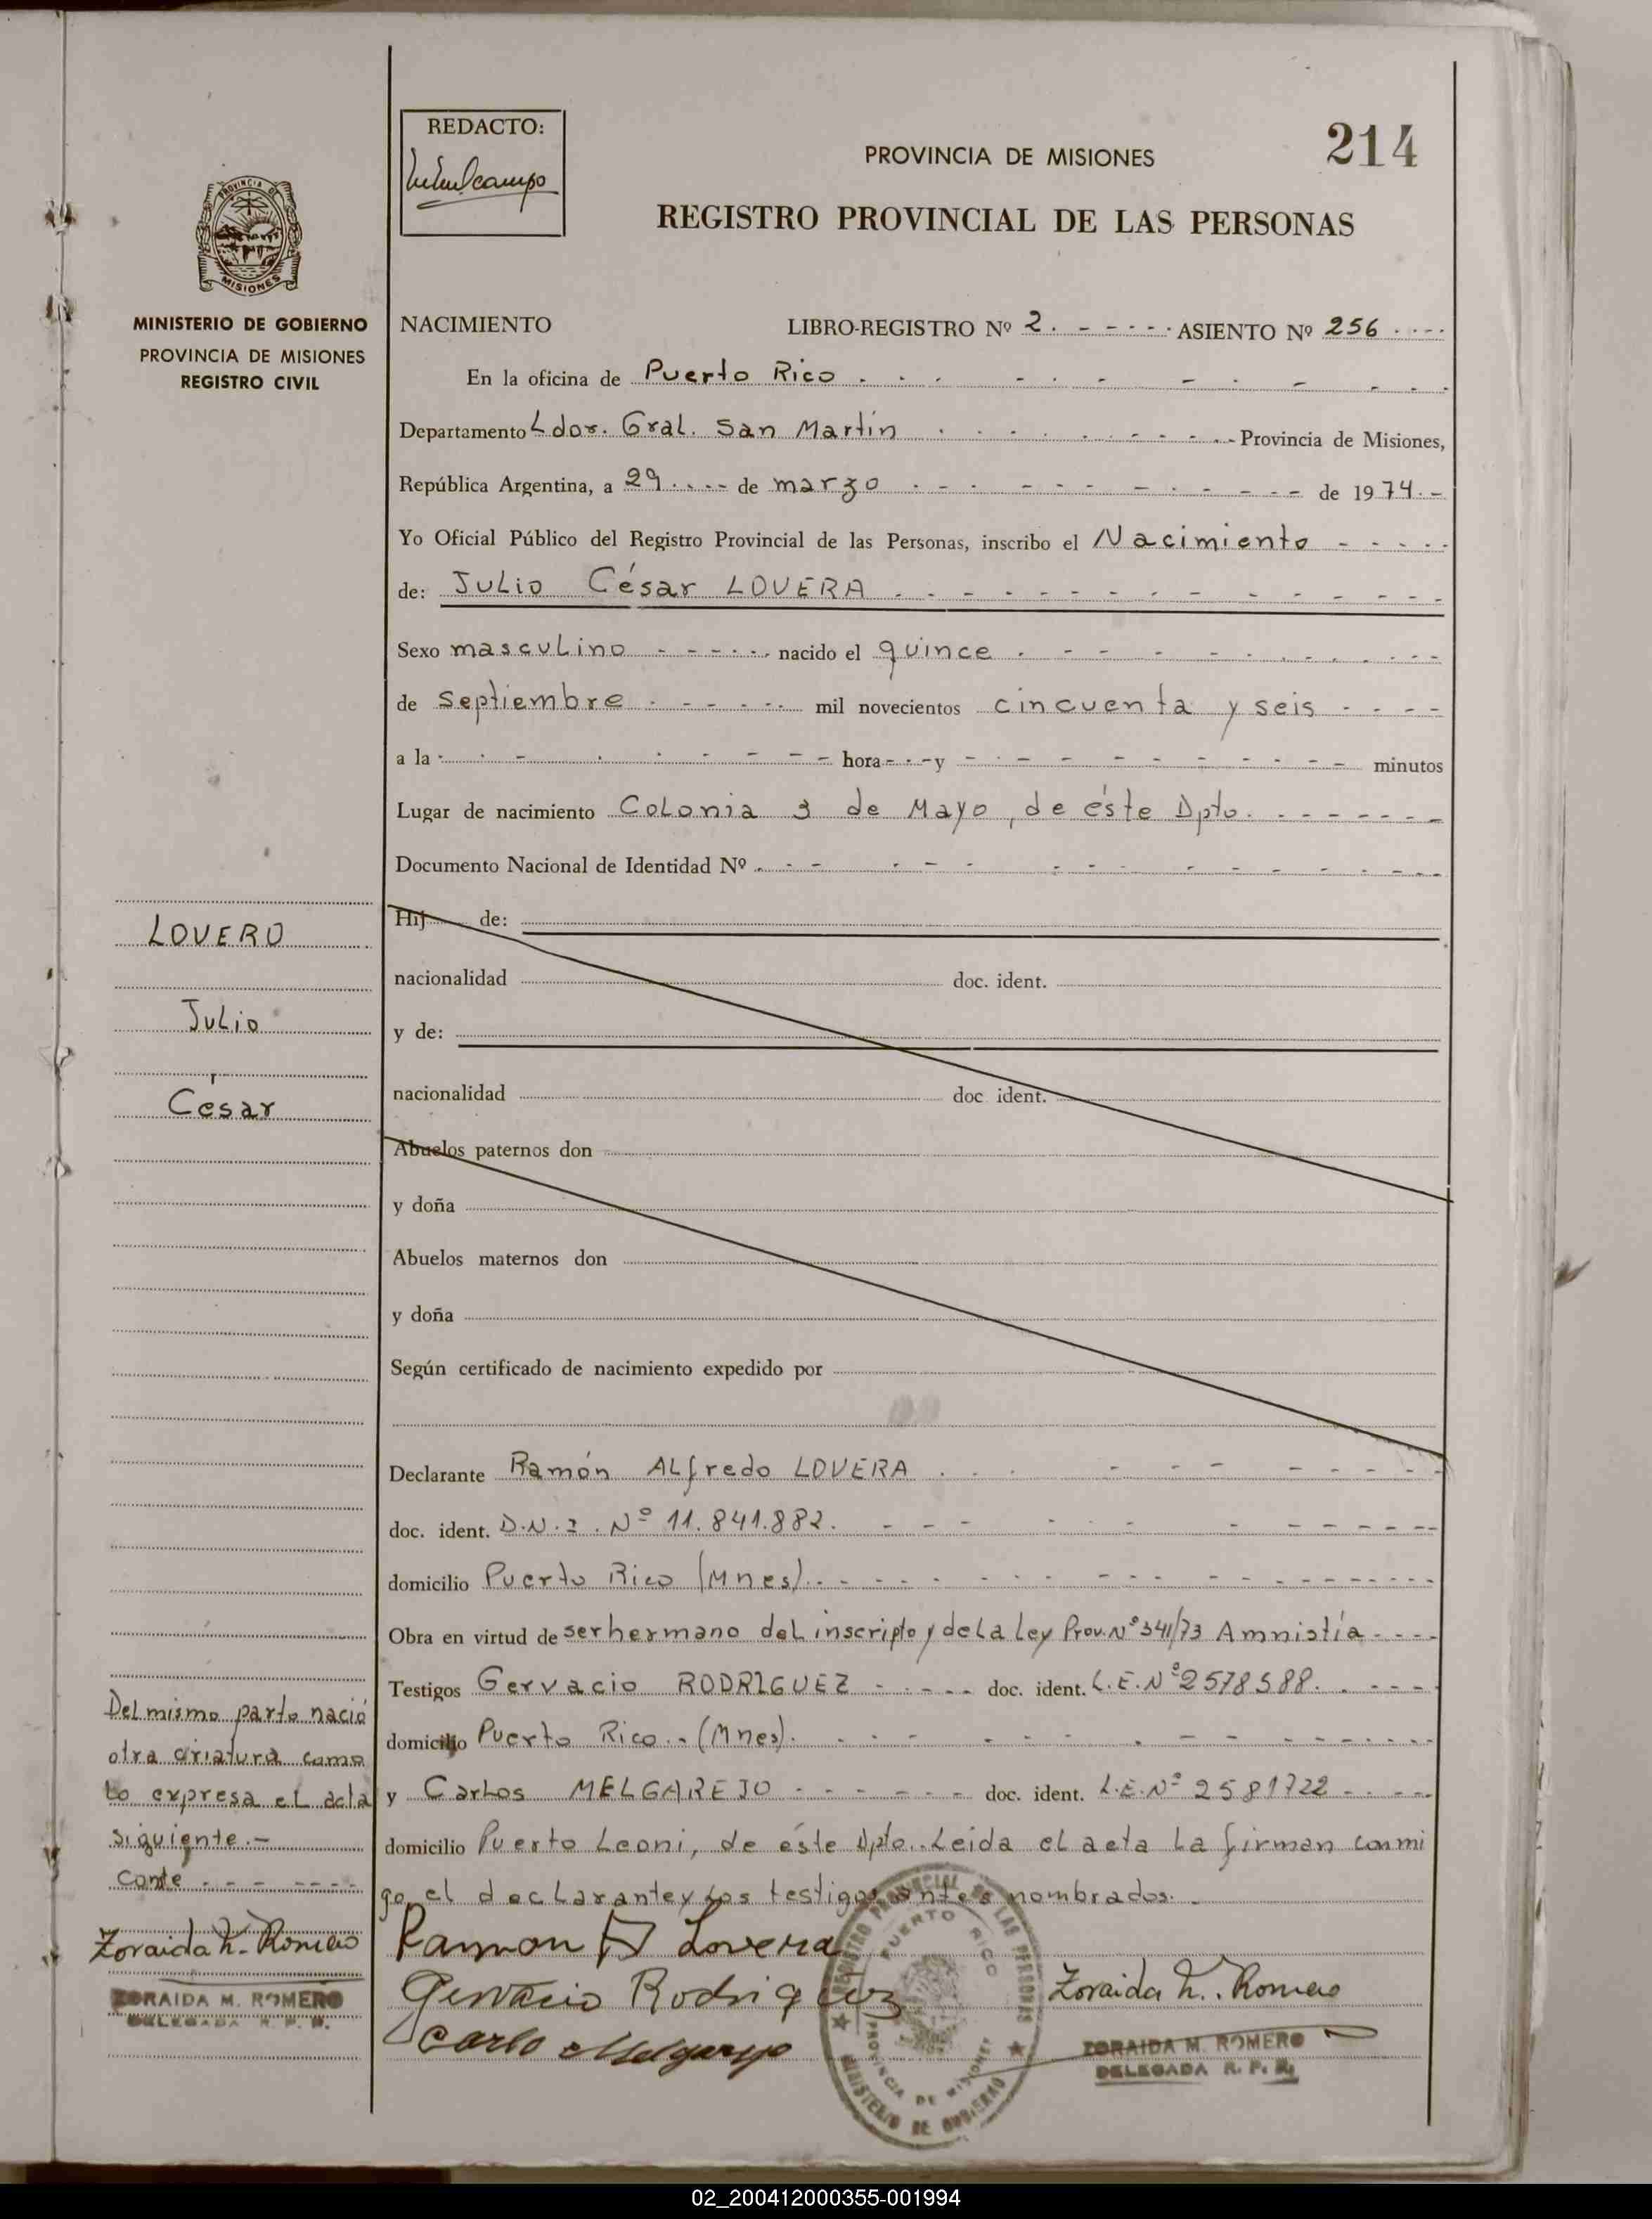 REDACTO:
PROVINCIA DE MISIONES
214
REGISTRO PROVINCIAL DE LAS PERSONAS
PROVINCIA DE
MISIONES
MINISTERIO DE GOBIERNO
PROVINCIA DE MISIONES
REGISTRO CIVIL
NACIMIENTO LIBRO-REGISTRO Nº 2. - - - - - ASIENTO Nº 256 - - - -
En la oficina de Puerto Rico
Departamento Ldor. Gral. San Martín - - - - Provincia de Misiones,
República Argentina, a 29 - - - - de marzo - - - - de 1974.-
Yo Oficial Público del Registro Provincial de las Personas, inscribo el Nacimiento - - - - -
de: Julio César LOVERA - - - -
Sexo masculino - - - - - nacido el quince - - - -
de septiembre - - - - - mil novecientos cincuenta y seis - - - -
a la - - - - hora - - - y - - - - minutos
Lugar de nacimiento Colonia 3 de Mayo, de éste Dpto. - - - -
Documento Nacional de Identidad Nº - - - -
Hij de:
nacionalidad doc. ident.
y de:
nacionalidad doc ident.
Abuelos paternos don
y doña
Abuelos maternos don
y doña
Según certificado de nacimiento expedido por
Declarante Ramón Alfredo LOVERA - - - -
doc. ident. D.N.I. Nº 11.841.882. - - - -
domicilio Puerto Rico (Mnes). - - - -
Obra en virtud de ser hermano del inscripto y de la Ley Prov. Nº 341/73 Amnistía - - - -
Testigos Gervacio RODRIGUEZ - - - - doc. ident. L.E. Nº 2578588. - - - -
domicilio Puerto Rico.. (Mnes). - - - -
y Carlos MELGAREJO - - - - doc. ident. L.E. Nº 2581722 - - - -
domicilio Puerto Leoni, de éste Dpto.. Leida el acta la firman conmi
go el declarante y los testigos antes nombrados. -
LOVERO
Julio
César
Del mismo parto nació
otra criatura como
lo expresa el acta
siguiente.-
Conte - - - -
Zoraida M. Romero
ZORAIDA M. ROMERO
DELEGADA R. P. P.
Ramon A Lovera
Gervacio Rodriguez
Carlo Melgarejo
REGISTRO PROVINCIAL DE LAS PERSONAS
PUERTO RICO
PROVINCIA DE MISIONES
MINISTERIO DE GOBIERNO
Zoraida M. Romero
ZORAIDA M. ROMERO
DELEGADA R. P. P.
02_200412000355-001994